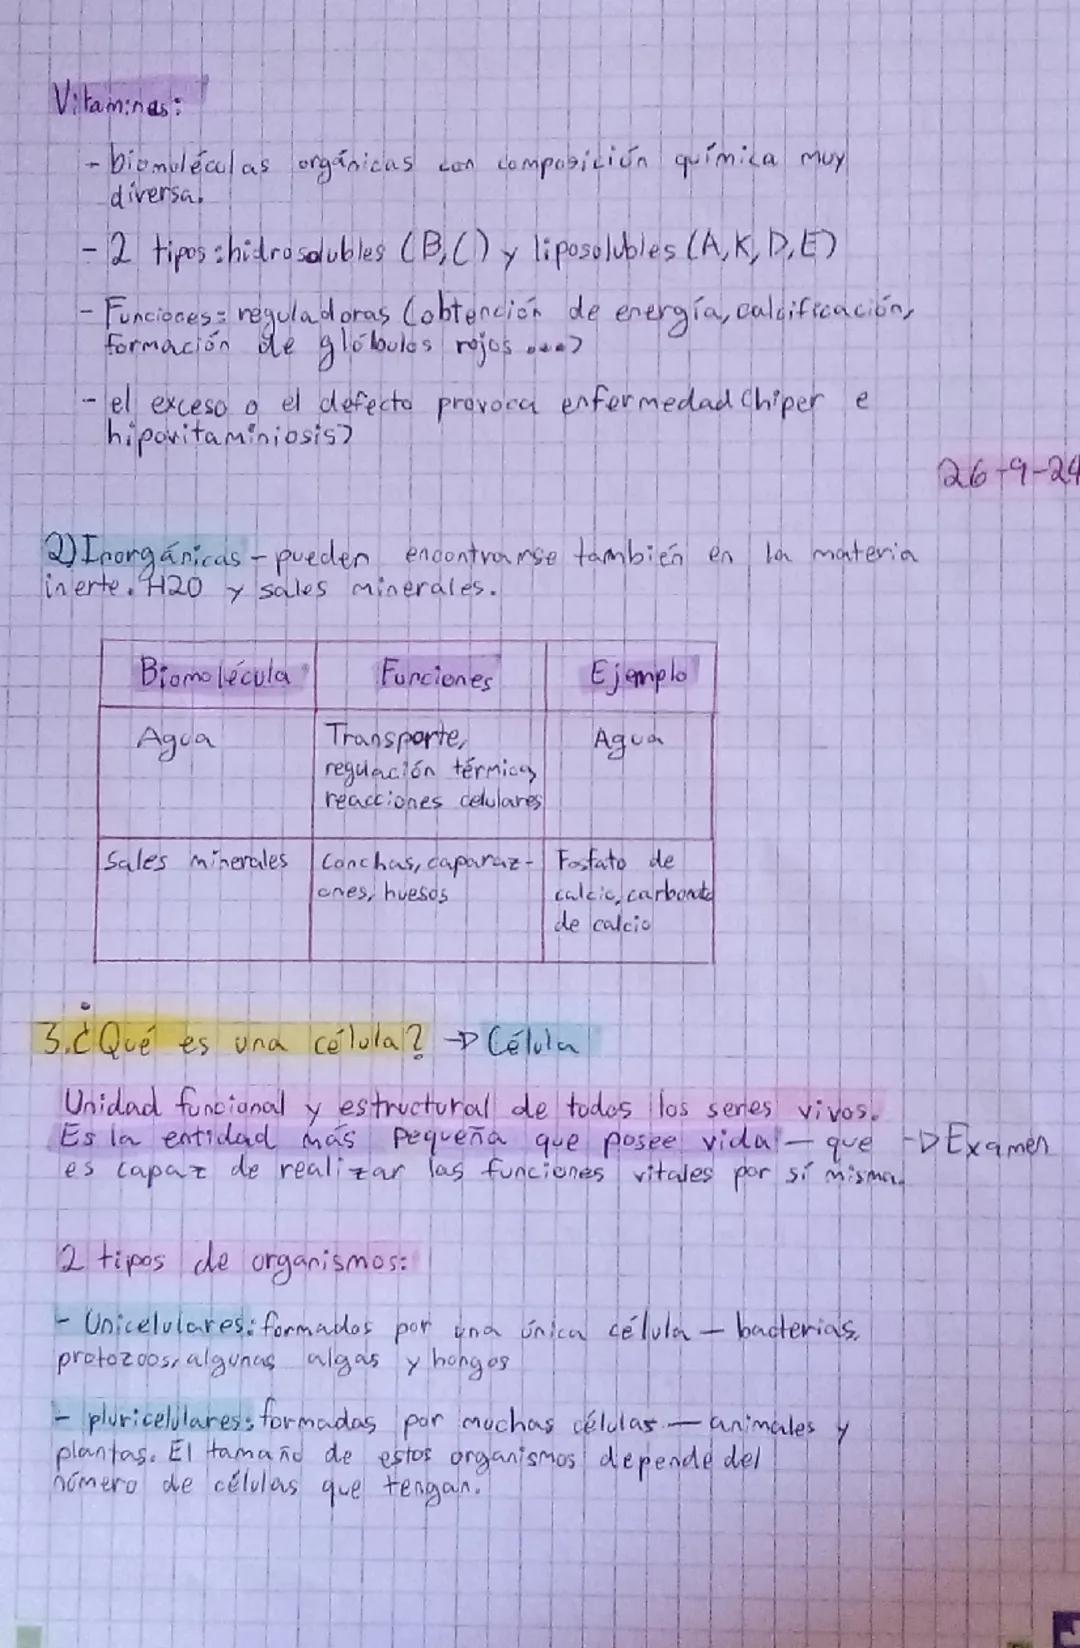 Vitaminas:
- biomoléculas orgánicas con composición química muy
diversa.
- 2 tipos: hidrosolubles (B,C) y liposolubles (A,K,D,E)
- Funciones: reguladoras (obtención de energía, calcificación,
formación de glóbulos rojos ...)
- el exceso o el defecto provoca enfermedad (hiper e
hipovitaminiosis)
26-9-24
2) Inorgánicas - pueden encontrarse también en la materia
inerte. H2O y sales minerales.
Biomolécula Funciones Ejemplo
Agua Transporte, Agua
regulación térmica,
reacciones celulares
Sales minerales Conchas, caparaz- Fosfato de
ones, huesos calcio, carbonato
de calcio
3. ¿Qué es una célula? → Célula
Unidad funcional y estructural de todos los seres vivos.
Es la entidad más pequeña que posee vida - que → Examen
es capaz de realizar las funciones vitales por sí misma.
2 tipos de organismos:
- Unicelulares: formados por una única célula - bacterias,
protozoos, algunas algas y hongos
- pluricelulares: formadas por muchas células - animales y
plantas. El tamaño de estos organismos depende del
número de células que tengan.